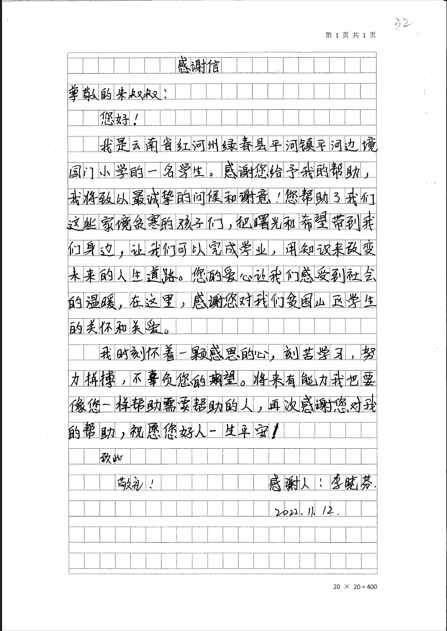 32
第 1 页 共 1 页
感谢信
尊敬的朱叔叔：
您好！
我是云南省红河州绿春县平河镇平河边境
国门小学的一名学生。感谢您给予我的帮助，
我将致以最诚挚的问候和谢意！您帮助了我们
这些家境贫寒的孩子们，把曙光和希望带到我
们身边，让我们可以完成学业，用知识来改变
未来的人生道路。您的爱心让我们感受到社会
的温暖，在这里，感谢您对我们贫困山区学生
的关怀和关爱。
我时刻怀着一颗感恩的心，刻苦学习，努
力拼搏，不辜负您的期望。将来有能力我也要
像您一样帮助需要帮助的人，再次感谢您对我
的帮助，祝愿您好人一生平安！
致此
敬礼！
感谢人：李晓芬.
2022.11.12.
20 × 20 = 400